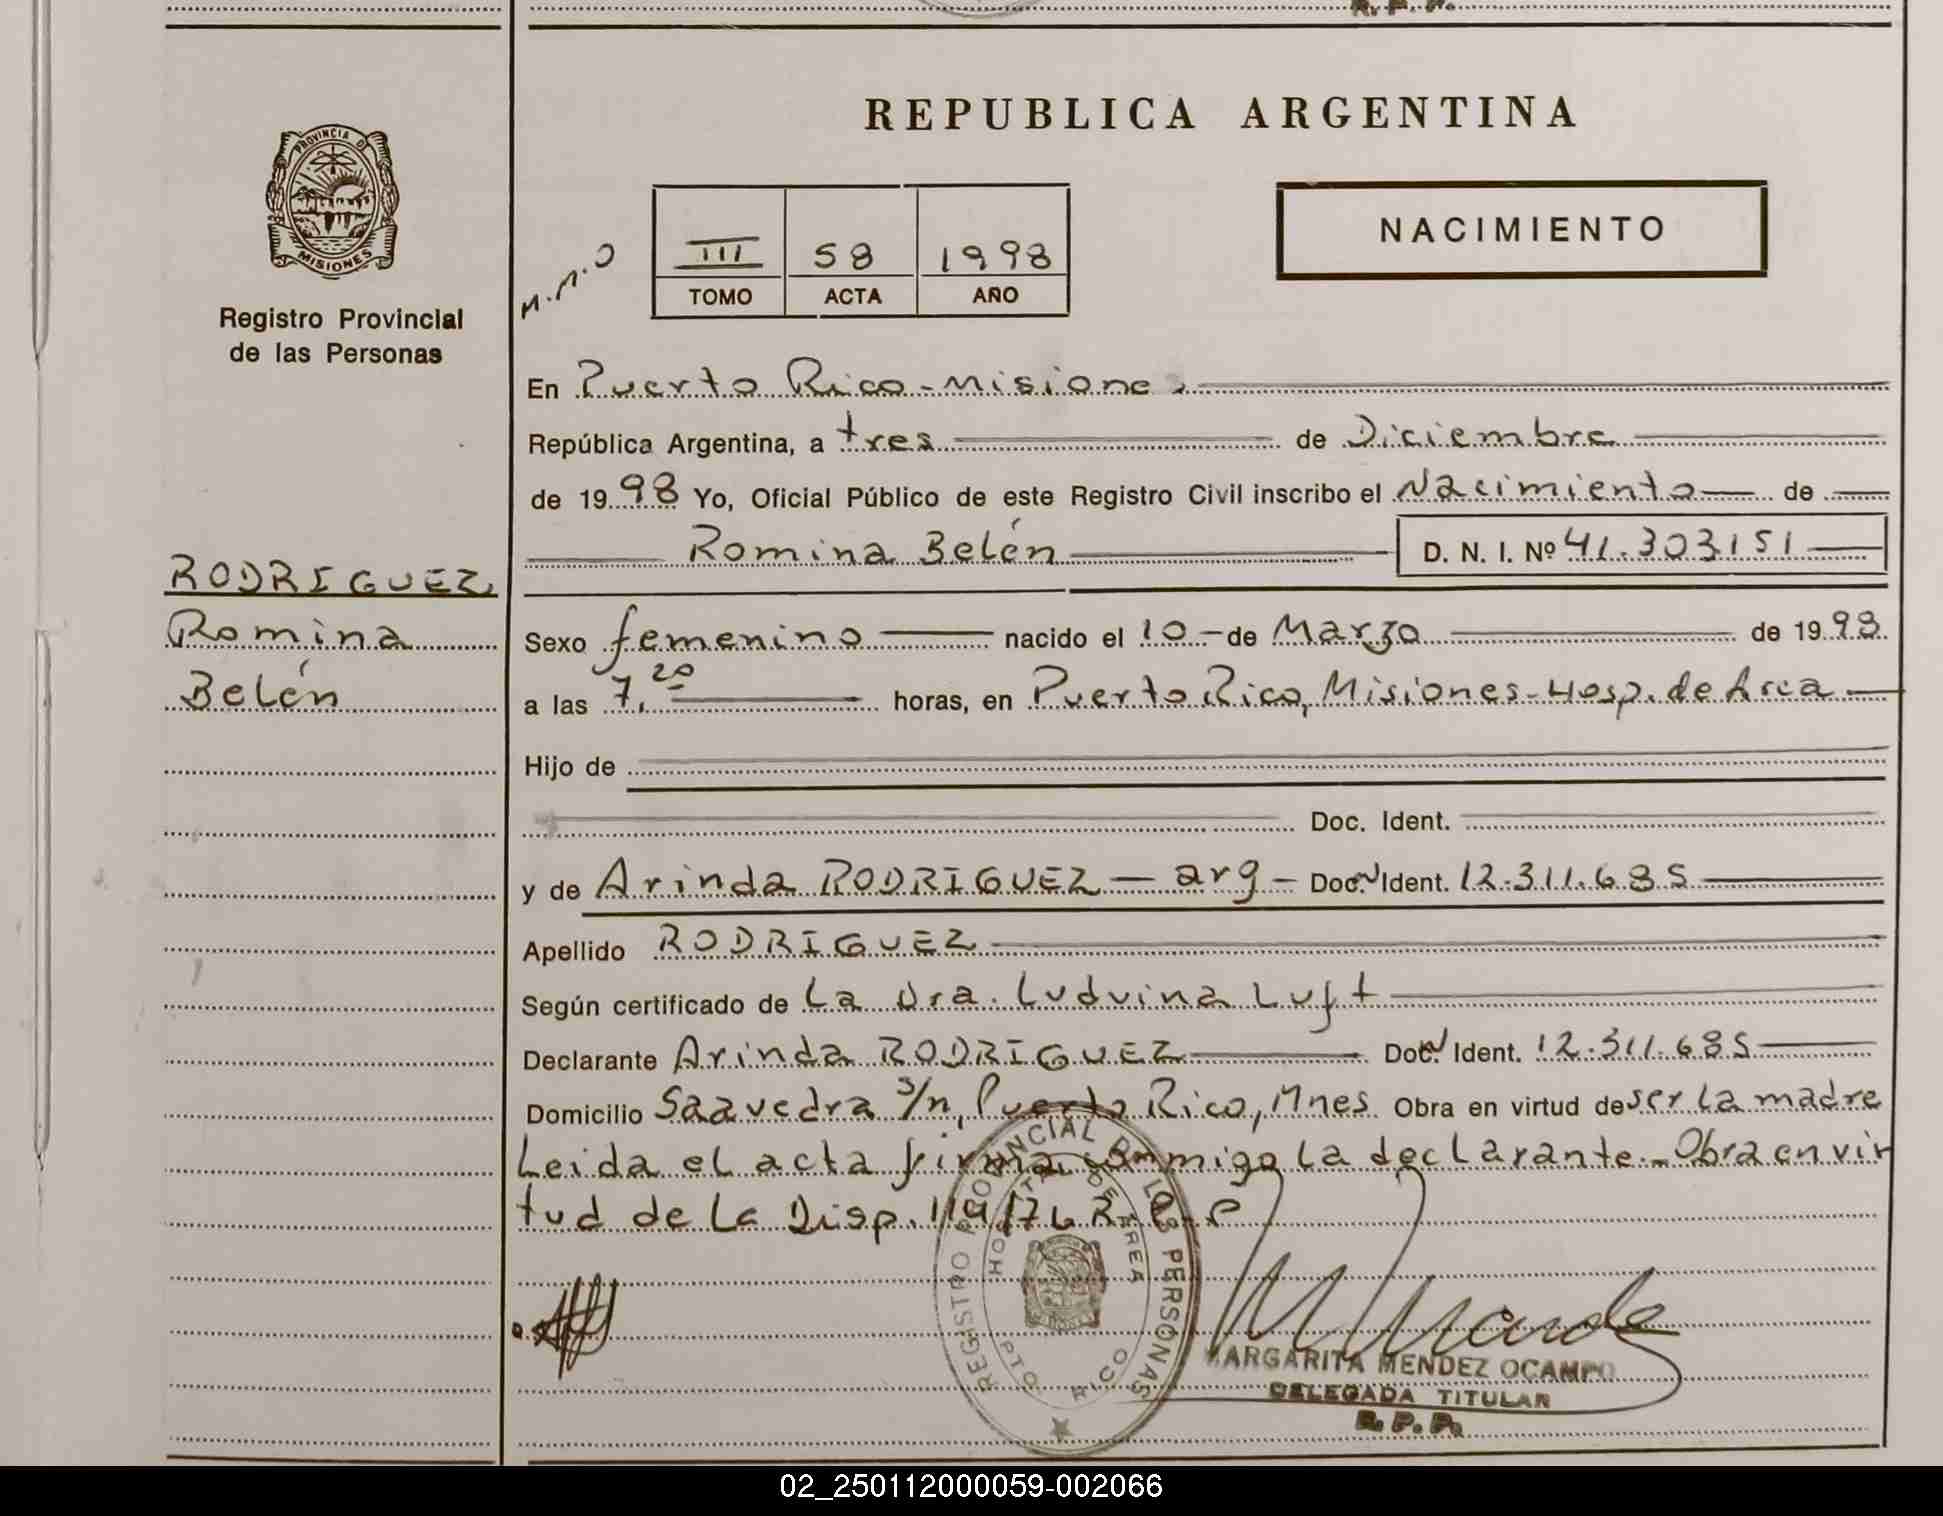 R. P. P.
REPUBLICA ARGENTINA
PROVINCIA D
MISIONES
Registro Provincial
de las Personas
M.M.O
III 58 1998
TOMO ACTA AÑO
NACIMIENTO
En Puerto Rico-Misiones
República Argentina, a tres de Diciembre
de 1998 Yo, Oficial Público de este Registro Civil inscribo el Nacimiento de
Romina Belén D. N. I. Nº 41.303151
RODRIGUEZ
Romina
Belén
Sexo femenino nacido el 10 - de Marzo de 1998
a las 7,20 horas, en Puerto Rico, Misiones-Hosp. de Area
Hijo de
Doc. Ident.
y de Arinda RODRIGUEZ - arg - Doc. N Ident. 12.311.685
Apellido RODRIGUEZ
Según certificado de La Dra. Ludvina Luft
Declarante Arinda RODRIGUEZ Doc. N Ident. 12.311.685
Domicilio Saavedra s/n, Puerto Rico, Mnes Obra en virtud de ser la madre
Leida el acta firma conmigo la declarante.- Obra en vir
tud de la Disp. 119/76 R.P.P
REGISTRO PROVINCIAL DE LAS PERSONAS
HOSPITAL DE AREA
PTO. RICO
MARGARITA MENDEZ OCAMPO
DELEGADA TITULAR
R. P. P.
02_250112000059-002066